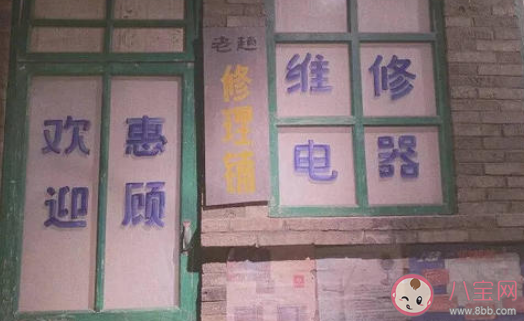 欢迎
惠顾
老
修理铺
维修
电器
八宝网
www.8bb.com